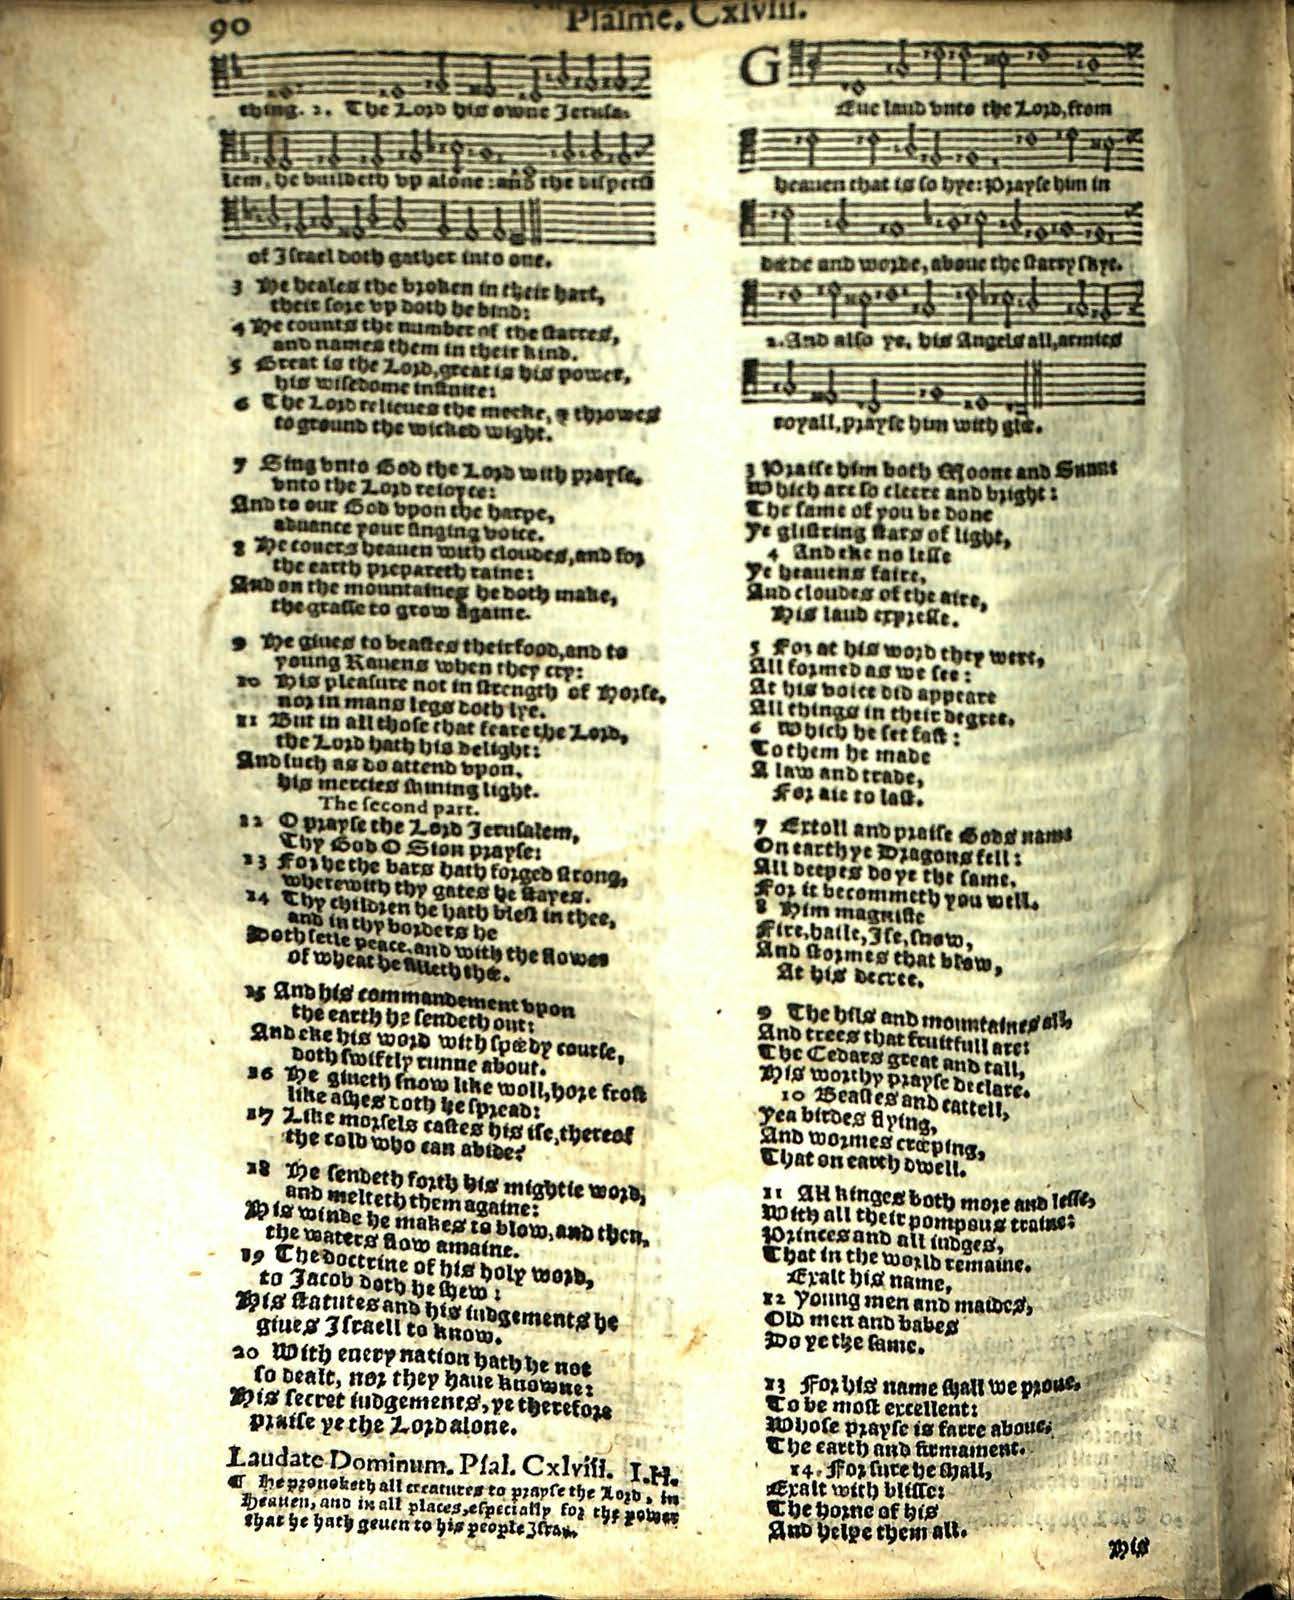 90
Psalme. Cxlviii.
thing. 2. The Lord his owne Jerusa-
lem, he buildeth vp alone: and the disperst
of Israel doth gather into one.
3 He heales the broken in their hart,
their sore vp doth he bind:
4 He counts the number of the starres,
and names them in their kind.
5 Great is the Lord, great is his power,
his wisedome infinite:
6 The Lord relieues the meeke, & throwes
to ground the wicked wight.
7 Sing vnto God the Lord with prayse,
vnto the Lord reioyce:
And to our God vpon the harpe,
aduance your singing voice.
8 He couers heauen with cloudes, and for
the earth prepareth raine:
And on the mountaines he doth make,
the grasse to grow againe.
9 He giues to beastes their food, and to
young Rauens when they cry:
10 His pleasure not in strength of Horse,
nor in mans legs doth lye.
11 But in all those that feare the Lord,
the Lord hath his delight:
And such as do attend vpon,
his mercies shining light.
The second part.
12 O prayse the Lord Jerusalem,
Thy God O Sion prayse:
13 For he the bars hath forged strong,
wherewith thy gates he stayes.
14 Thy children he hath blest in thee,
and in thy borders he
Doth setle peace, and with the flower
of wheat he filleth thee.
15 And his commandement vpon
the earth he sendeth out:
And eke his word with speedy course,
doth swiftly runne about.
16 He giueth snow like woll, hore frost
like ashes doth he spread:
17 Like morsels castes his ise, thereof
the cold who can abide?
18 He sendeth forth his mightie word,
and melteth them againe:
His winde he makes to blow, and then,
the waters flow amaine.
19 The doctrine of his holy word,
to Jacob doth he shew:
His statutes and his iudgements he
giues Israell to know.
20 With euery nation hath he not
so dealt, nor they haue knowne:
His secret iudgements, ye therefore
praise ye the Lord alone.
Laudate Dominum. Psal. Cxlviii. I.H.
¶ He prouoketh all creatures to prayse the Lord, in
Heauen, and in all places, especially for the power
that he hath geuen to his people Israel.
GEue laud vnto the Lord, from
heauen that is so hye: Prayse him in
deede and worde, aboue the starry skye.
2. And also ye, his Angels all, armies
royall, prayse him with glee.
3 Praise him both Moone and Sunne
Which are so cleere and bright:
The same of you be done
Ye glistring stars of light,
4 And eke no lesse
Ye heauens faire,
And cloudes of the aire,
His laud expresse.
5 For at his word they were,
All formed as we see:
At his voice did appeare
All things in their degree,
6 Which he set fast:
To them he made
A law and trade,
For aie to last.
7 Extoll and praise Gods name
On earth ye Dragons fell:
All deepes do ye the same,
For it becommeth you well.
8 Him magnifie
Fire, haile, Ise, snow,
And stormes that blow,
At his decree.
9 The hils and mountaines all,
And trees that fruitfull are:
The Cedars great and tall,
His worthy prayse declare.
10 Beastes and cattell,
Yea birdes flying,
And wormes creeping,
That on earth dwell.
11 All kinges both more and lesse,
With all their pompous traine:
Princes and all iudges,
That in the world remaine.
Exalt his name,
12 Young men and maides,
Old men and babes
Do ye the same.
13 For his name shall we proue,
To be most excellent:
Whose prayse is farre aboue,
The earth and firmament.
14. For sure he shall,
Exalt with blisse:
The horne of his
And helpe them all.
His